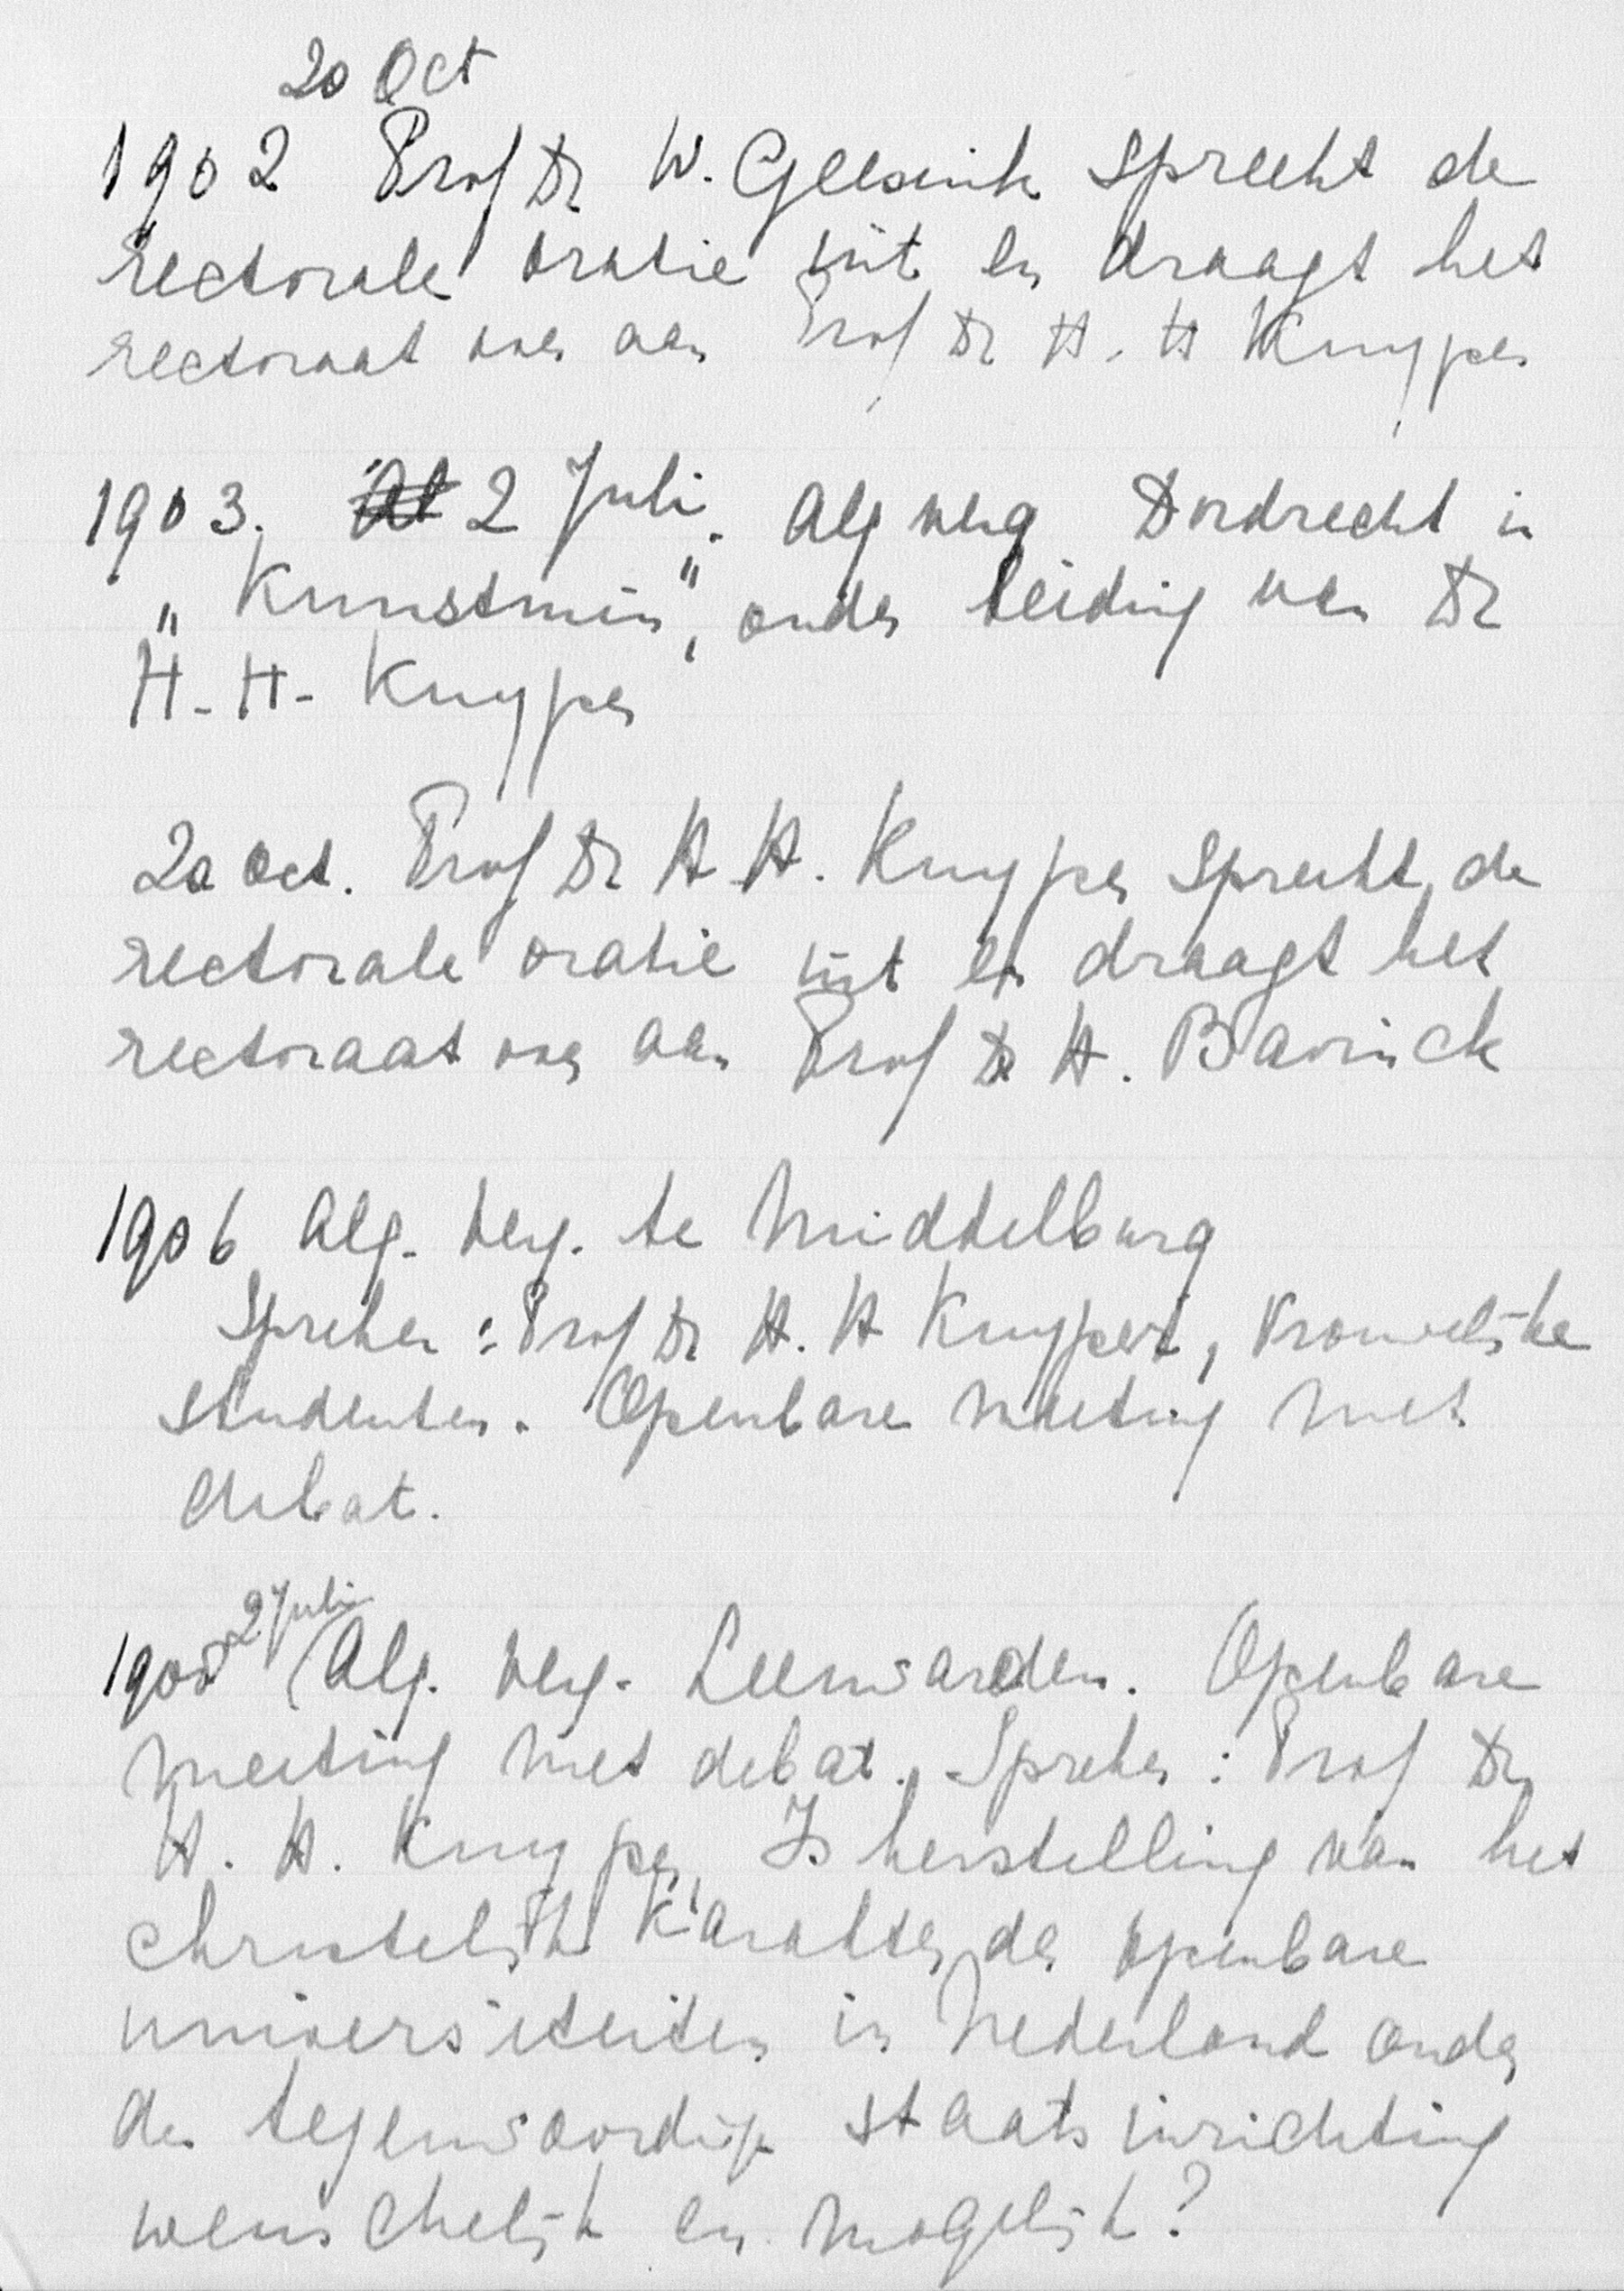 20 Oct
1902 Prof Dr W. Geesink spreekt de
rectorale oratie uit en draagt het
rectoraat over aan Prof Dr H. H Kuyper
1903. Al 2 Juli. Alg verg Dordrecht in
„Kunstmin", onder leiding van Dr
H. H. Kuyper
20 Oct. Prof Dr H H. Kuyper spreekt de
rectorale oratie uit en draagt het
rectoraat over aan Prof Dr H. Bavinck
1906 Alg. verg. te Middelburg
Spreker: Prof Dr H. H Kuyper, Vrouwelijke
studenten. Openbare meeting met
debat.
2 Juli
1908 Alg. verg. Leeuwarden. Openbare
meeting met debat. Spreker: Prof Dr
H. H. Kuyper, Is herstelling van het
christelijk karakter der openbare
universiteiten in Nederland onder
de tegenwoordige staatsinrichting
wenschelijk en mogelijk?